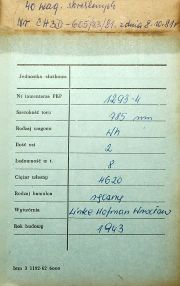 40 wag. skreślonych
Nr CH3D-605/23/81. z dnia 8.10.81r
Jednostka służbowa
Nr inwentarza PKP 1293-4
Szerokość toru 785 mm
Rodzaj wagonu Wh
Ilość osi 2
Ładowność w t. 8
Ciężar własny 4620
Rodzaj hamulca ręczny
Wytwórnia Linke Hofman Wrocław
Rok budowy 1943